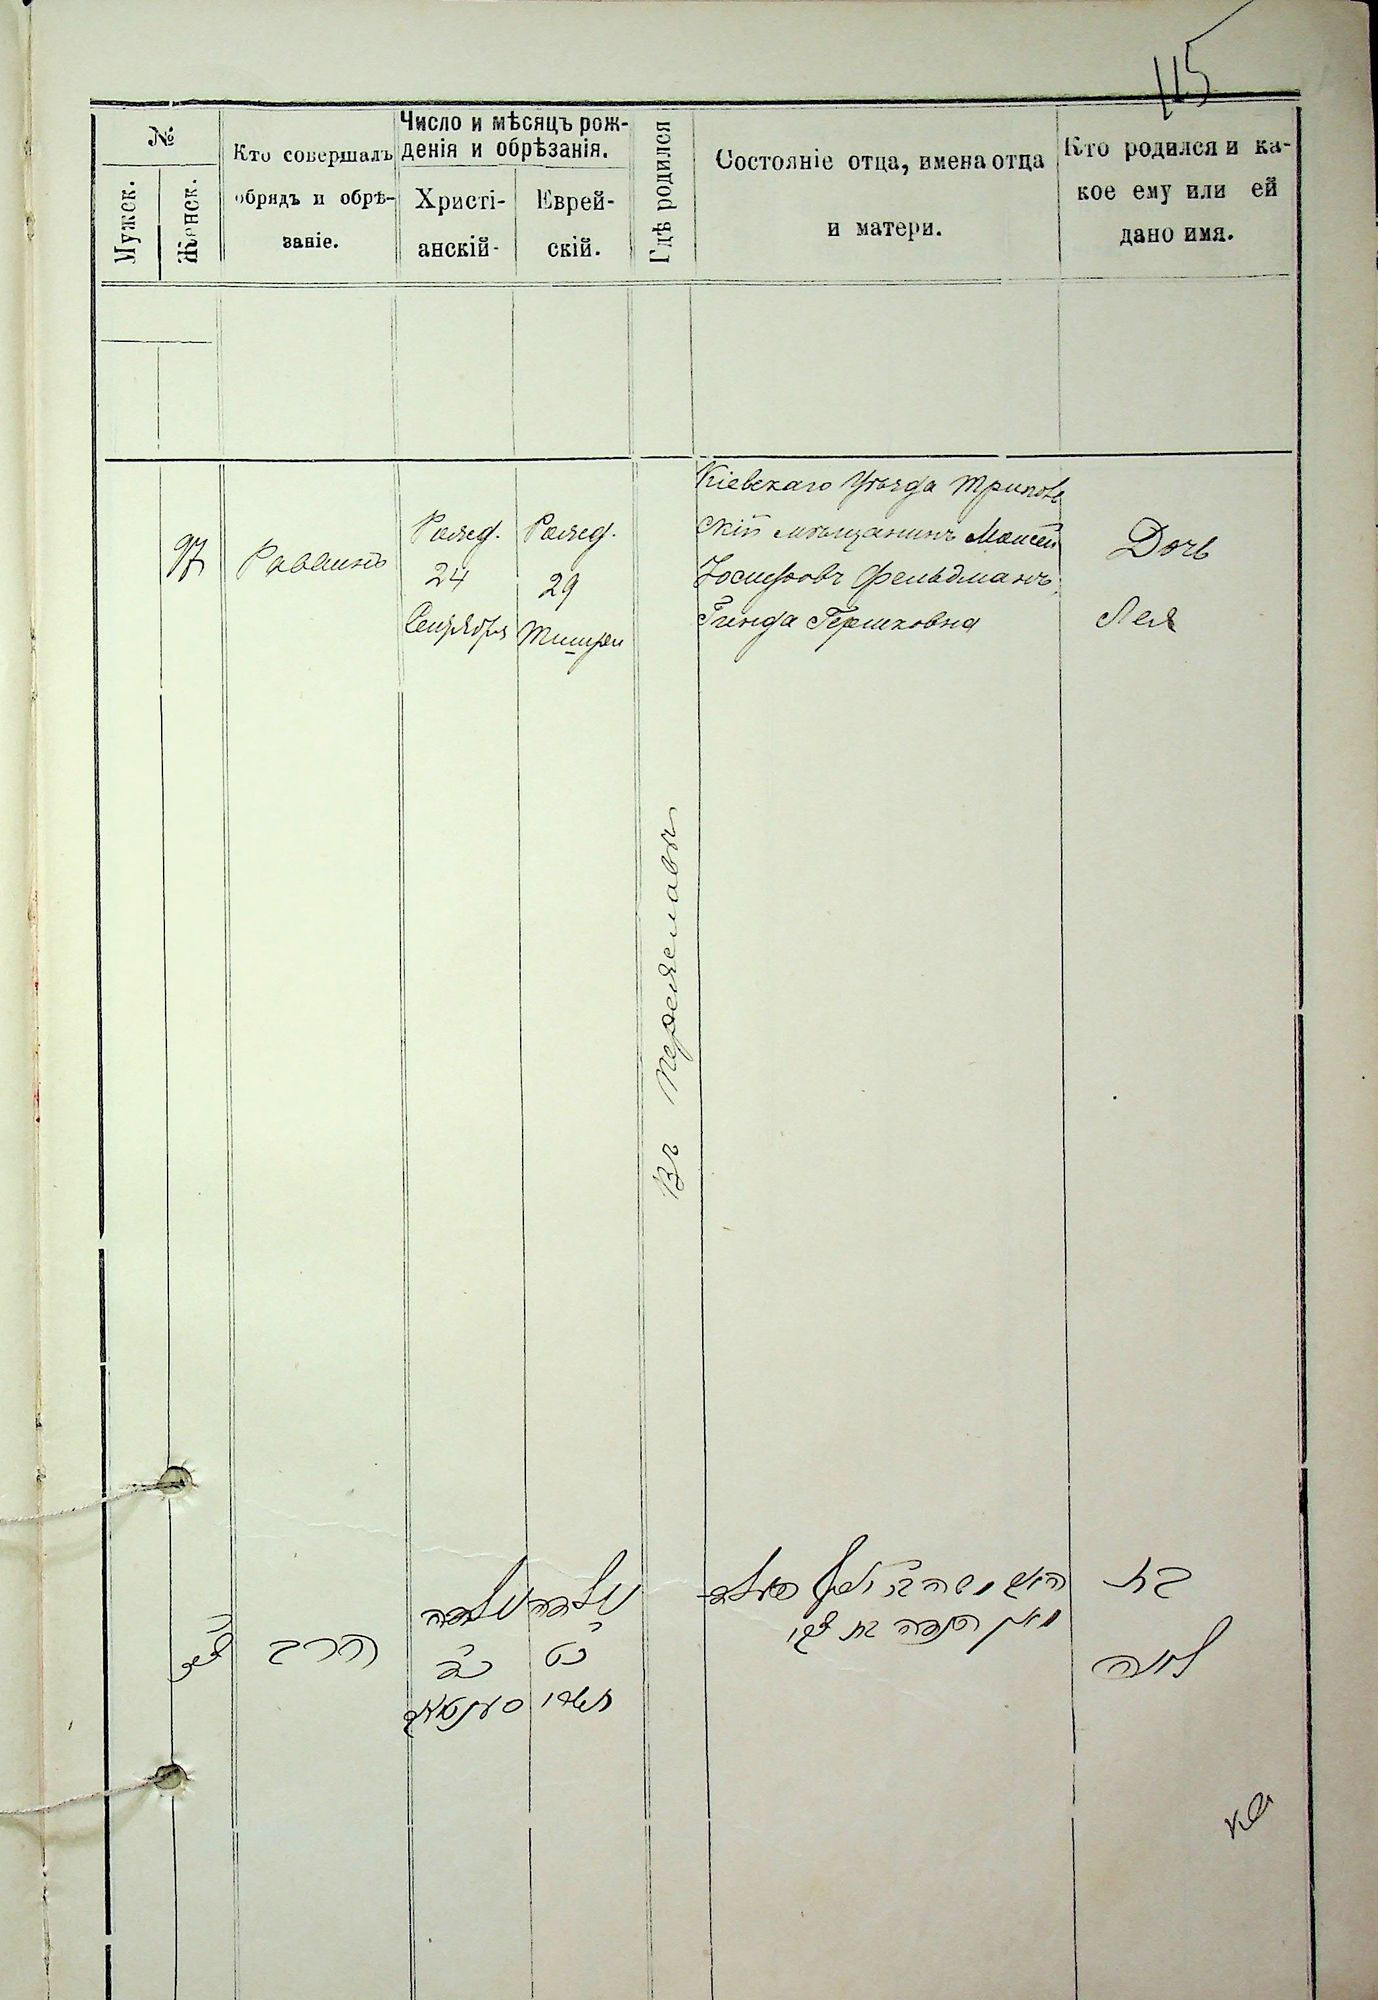 115
№
Мужск.
Женск.
Кто совершалъ
обрядъ и обрѣ-
заніе.
Число и мѣсяцъ рож-
денія и обрѣзанія.
Христі-
анскій-
Еврей-
скій.
Гдѣ родился
Состояніе отца, имена отца
и матери.
Кто родился и ка-
кое ему или ей
дано имя.
97
Раввинъ
Рожд.
24
Сентября
Рожд.
29
Тишри
Въ Переяславѣ
Кіевскаго Уѣзда Триполь
скій мѣщанинъ Моисей
Іосифовъ Фельдманъ,
Гинда Гершковна
Дочь
Лея
הרב
נולדה
כד
נולדה
כט
תשרי
בת
לאה